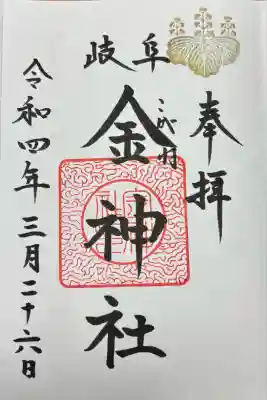 奉拝
岐阜
金神社
こがね
令和四年三月二十六日